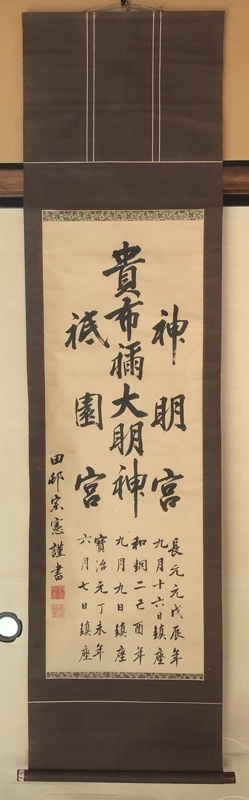 神明宮
貴布禰大明神
祇園宮
長元元戊辰年
九月十六日鎮座
和銅二己酉年
九月九日鎮座
寳治元丁未年
六月七日鎮座
田邨宗憲謹書